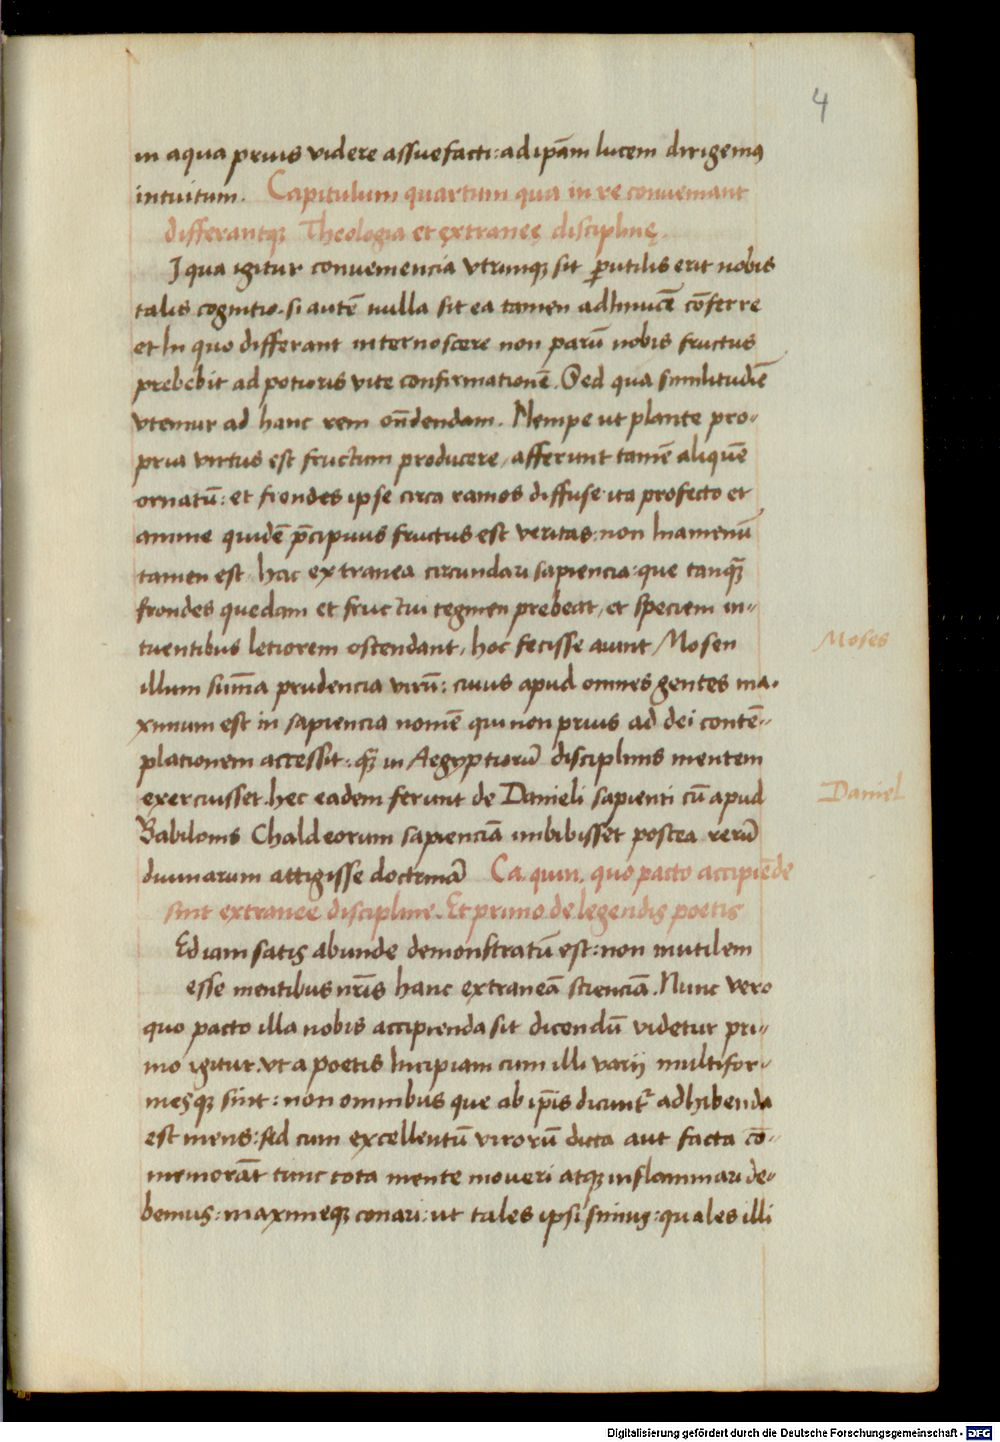 4
in aqua prius videre assuefacti: ad ip̃am lucem dirigemꝰ
intuitum. Capitulum quartum qua in re conueniant
differantqꝫ Theologia et ęxtraneę disciplinę.
J qua igitur conueniencia vtrunqꝫ sit ꝑutilis erit nobis
talis cognitio. si autē nulla sit ea tamen adhinuicē cōferre
et In quo differant internoscere non parū nobis fructus
prebebit ad potioris vite confirmationē. Sed qua similitudīe
vtemur ad hanc rem on̄dendam. Nempe ut plante pro-
pria virtus est fructum producere, afferunt tamē aliquē
ornatū: et frondes ipse circa ramos diffuse ita profecto et
anime quidē p̄cipuus fructus est veritas: non Inamenū
tamen est. hac extranea circundari sapiencia: que tanqꝫ̄
frondes quedam et fructui tegmen prebeat, et speciem in-
tuentibus letiorem ostendant, hoc fecisse aiunt Mosen
Moses
illum sum̄a prudencia virū: cuius apud omnes gentes ma-
ximum est in sapiencia nomē qui non prius ad dei contē-
plationem accessit: qꝫ̄ in Aegyptiorū disciplinis mentem
exercuisset. hec eadem ferunt de Danieli sapienti cū apud
Daniel
Babilonis Chaldeorum sapienciā imbibisset postea rerū
diuinarum attigisse doctrinā Ca. quin. quo pacto accipiēde
sint extranee discipline. Et primo de legendis poetis
Ed iam satis abunde demonstratū est: non inutilem
esse mentibus nr̄is hanc extraneā scienciā. Nunc vero
quo pacto illa nobis accipienda sit dicendū videtur pri-
mo igitur. vt a poetis Incipiam cum illi varij multifor-
mesqꝫ sint: non omnibus que ab ip̄is dicunt᷑ adhibenda
est mens: sed cum excellentū virorū dicta aut facta cō-
memorāt tunc tota mente moueri atqꝫ inflammari de-
bemus: maximeqꝫ conari: ut tales ipsi simus: quales illi
Digitalisierung gefördert durch die Deutsche Forschungsgemeinschaft - DFG